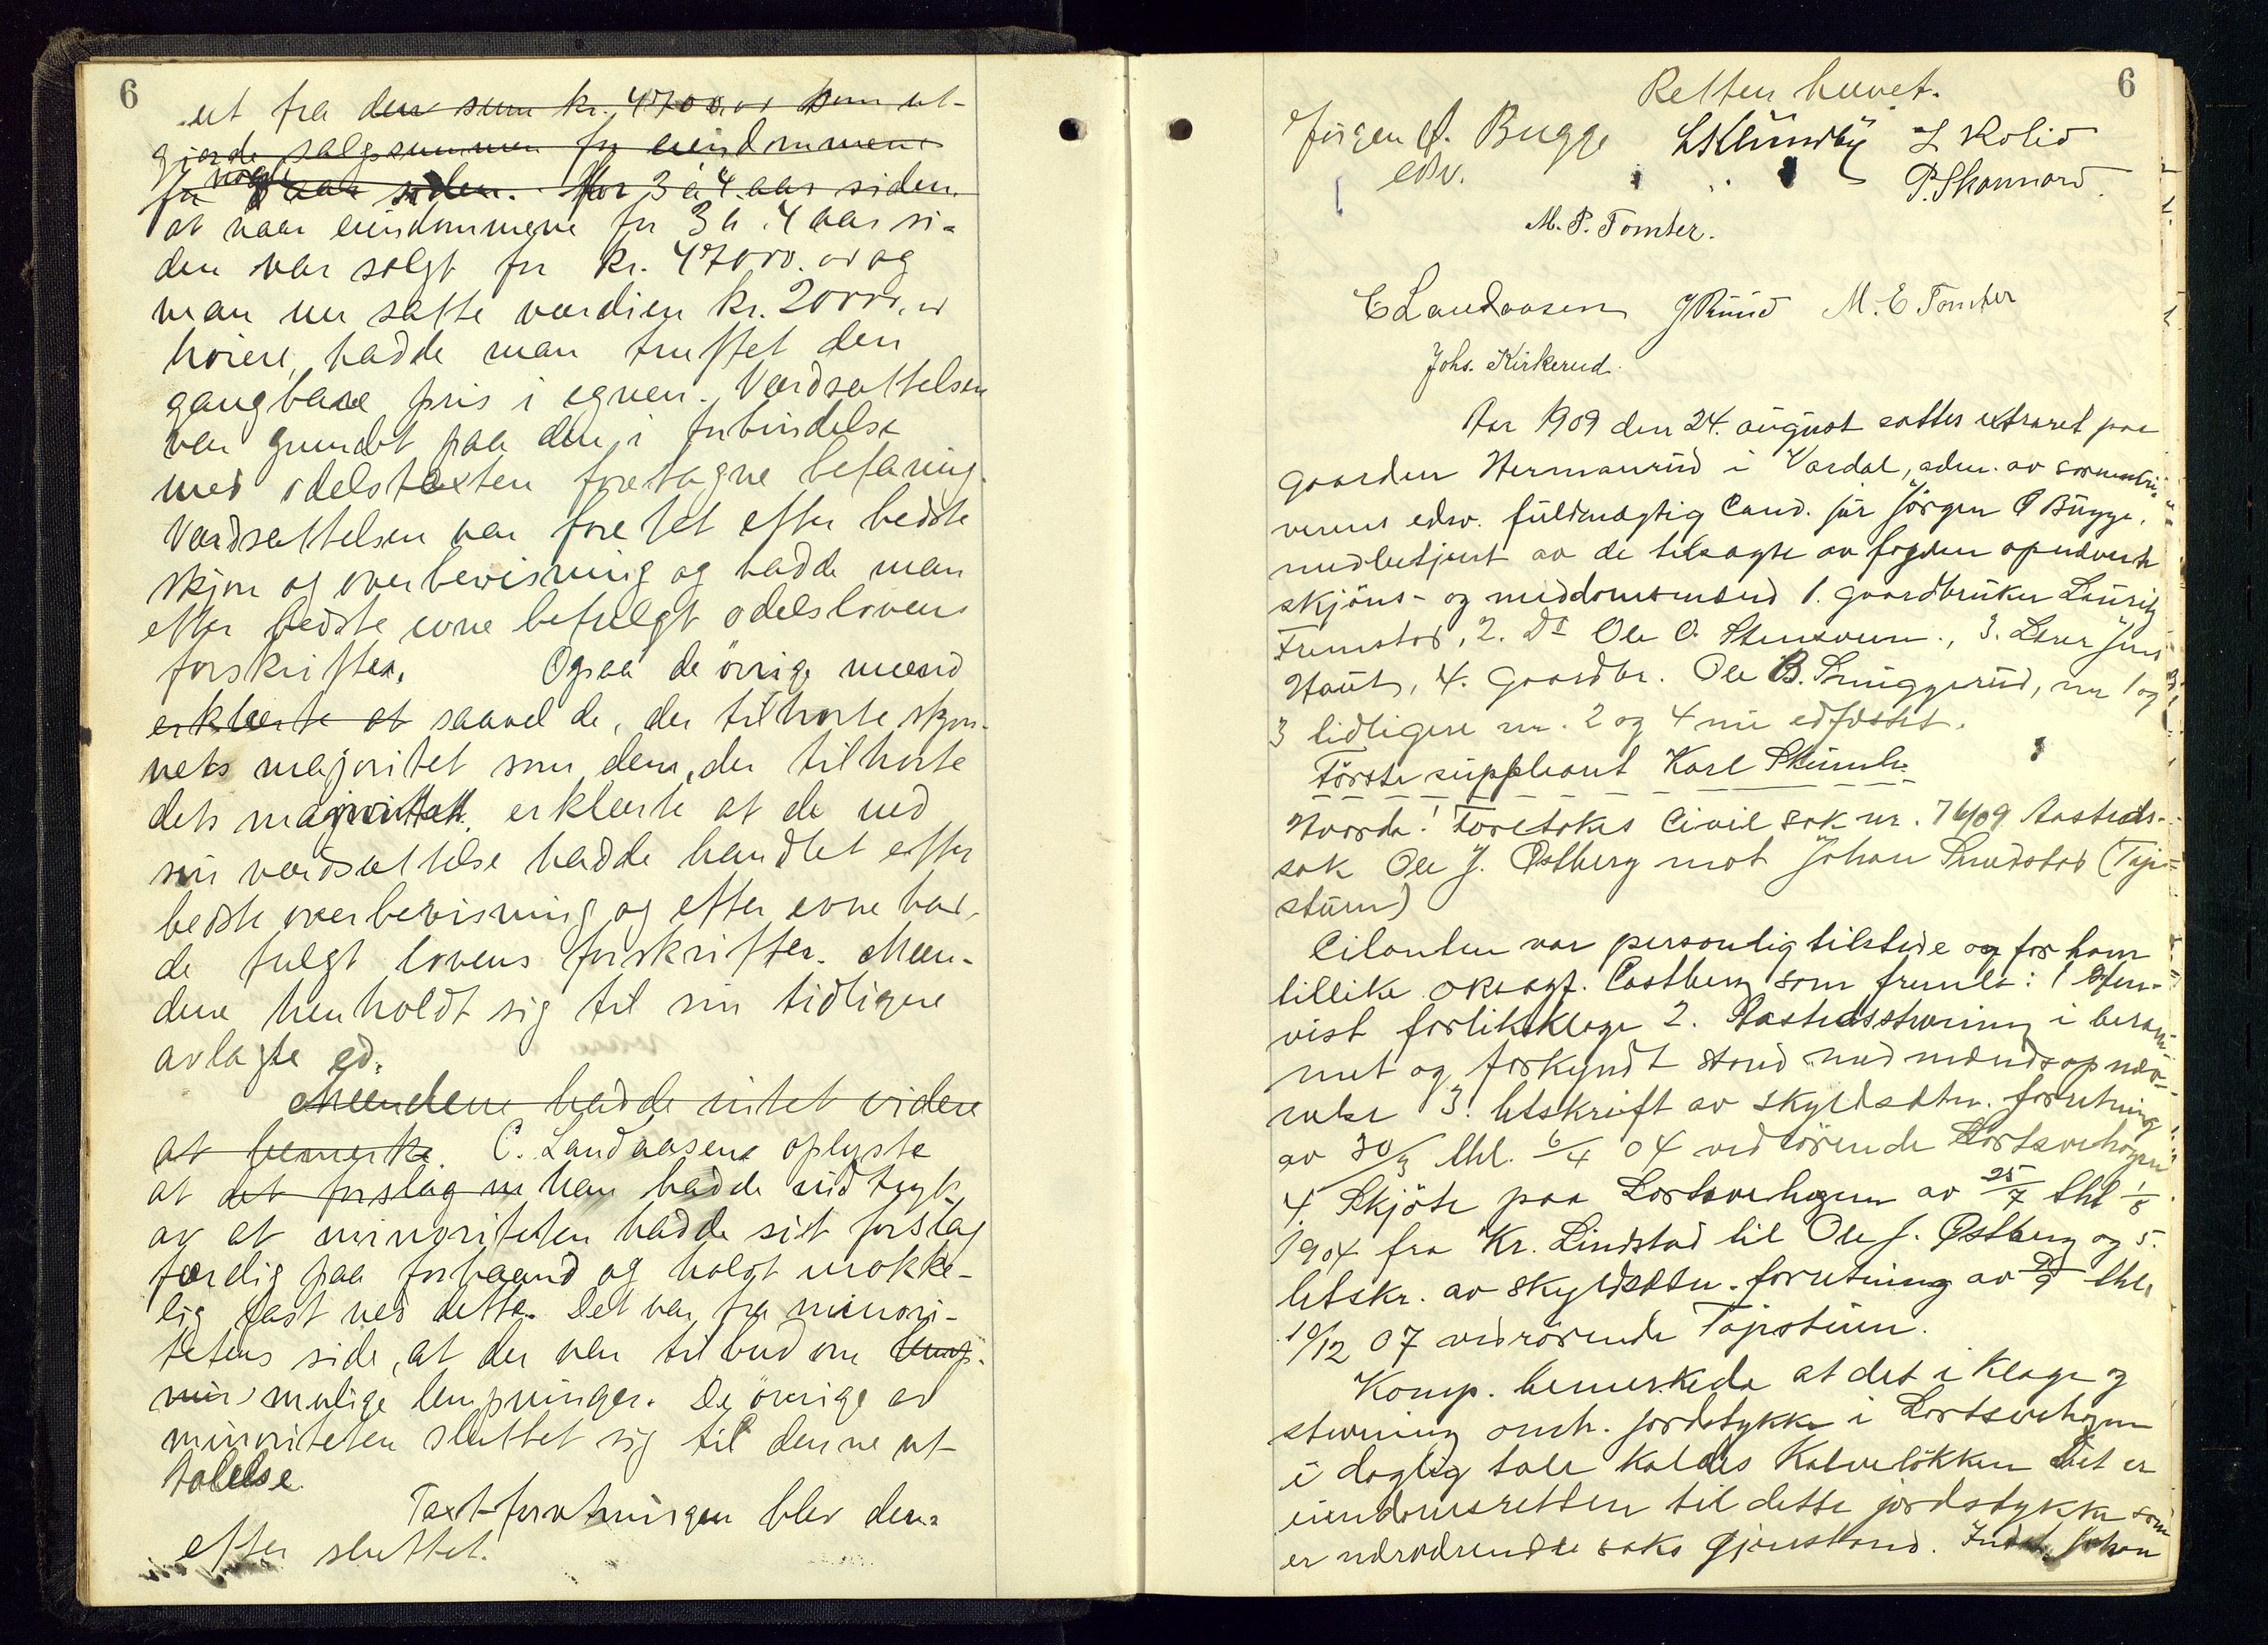 6
ut fra den sum kr. 47000.00 som ut-
gjorde salgssummen for eiendommene
for nogle aar siden. for 3 à 4 aar siden.
at naar eiendommene for 3 à 4 aar si-
den var solgt for kr. 47000.00 og
man nu satte værdien kr. 20000.00
høiere, hadde man truffet den
gangbare pris i egnen. Værdsættelsen
var grundet paa den i forbindelse
med odelstaxten foretagne befaring.
Værdsættelsen var foretat efter bedste
skjøn og overbevisning og hadde man
efter bedste evne befulgt odelslovens
forskrifter. Ogsaa de øvrige mænd
erklærte at saavel de, der tilhørte skjøn-
nets majoritet som dem, der tilhørte
dets erklærte at de ved
sin værdsættelse hadde handlet efter
bedste overbevisning og efter evne had-
de fulgt lovens forskrifter. Mæn-
dene henholdt sig til sin tidligere
avlagte ed.
Mændene hadde intet videre
at bemerke. C. Landaasen oplyste
at det forslag han hadde indtryk
av at minoriteten hadde sit forslag
færdig paa forhaand og holdt urokke-
lig fast ved dette. Det var fra minori-
tetens side, at der var tilbud om
mulige lempninger. De øvrige av
minoriteten sluttet sig til denne ut-
talelse.
Taxtforretningen blev der-
efter sluttet.
6
Retten hævet.
Jørgen Ø. Bugge L. Klundby L Kolid
edsv. P. Skonnord.
M. P. Tomter.
C Landaasen J Ruud M. E Tomter
Johs. Kirkerud.
Aar 1909 den 24. august sattes extraret paa
gaarden Hermanrud i Vardal, adm. av sorenskri-
verens edsv. fuldmægtig Cand. jur Jörgen Ø Bugge,
medbetjent av de tilsagte av fogden opnævnte
skjöns- og meddomsmænd 1. gaardbruker Lauritz
Fremstad, 2. Do Ole O. Stensveen., 3. Lærer Jens
Haut, 4. Gaardbr. Ole B. Snuggerud, nr 1 og
3 tidligere nr. 2 og 4 nu edfæstet.
Förste suppleant Karl
Hvorda! Foretokes Civil sak nr. 76/09 Aasteds-
sak Ole J. Østberg mot Johan Smedstad (Tajs-
stuen)
Citanten var personlig tilstede og for ham
tillike oksagf. Castberg som freml: 1 Hen-
vist forliksklage 2. Aastedsstevning i beram-
met og forkyndt stand med mændsopnæv-
nelse 3. Utskrift av skyldsdtn. forretning
av 30/3 thl. 6/4 04 vedrörende Lortsvehagen
4 Skjöte paa Lortsvehagen av 25/7 thl 1/8
1904 fra Kr. Lindstad til Ole J. Østberg og 5.
Utskr. av skyldsdtn. forretning av thl.
10/12 07 vedrörende Tajsstuen.
Komp. bemerkede at det i klage og
stevning omh. jordstykke i Lortsvehagen
i daglig tale kaldes Kalvelökken Det er
eiendomsretten til dette jordstykke som
er nærværende saks gjenstand. Indst. Johan